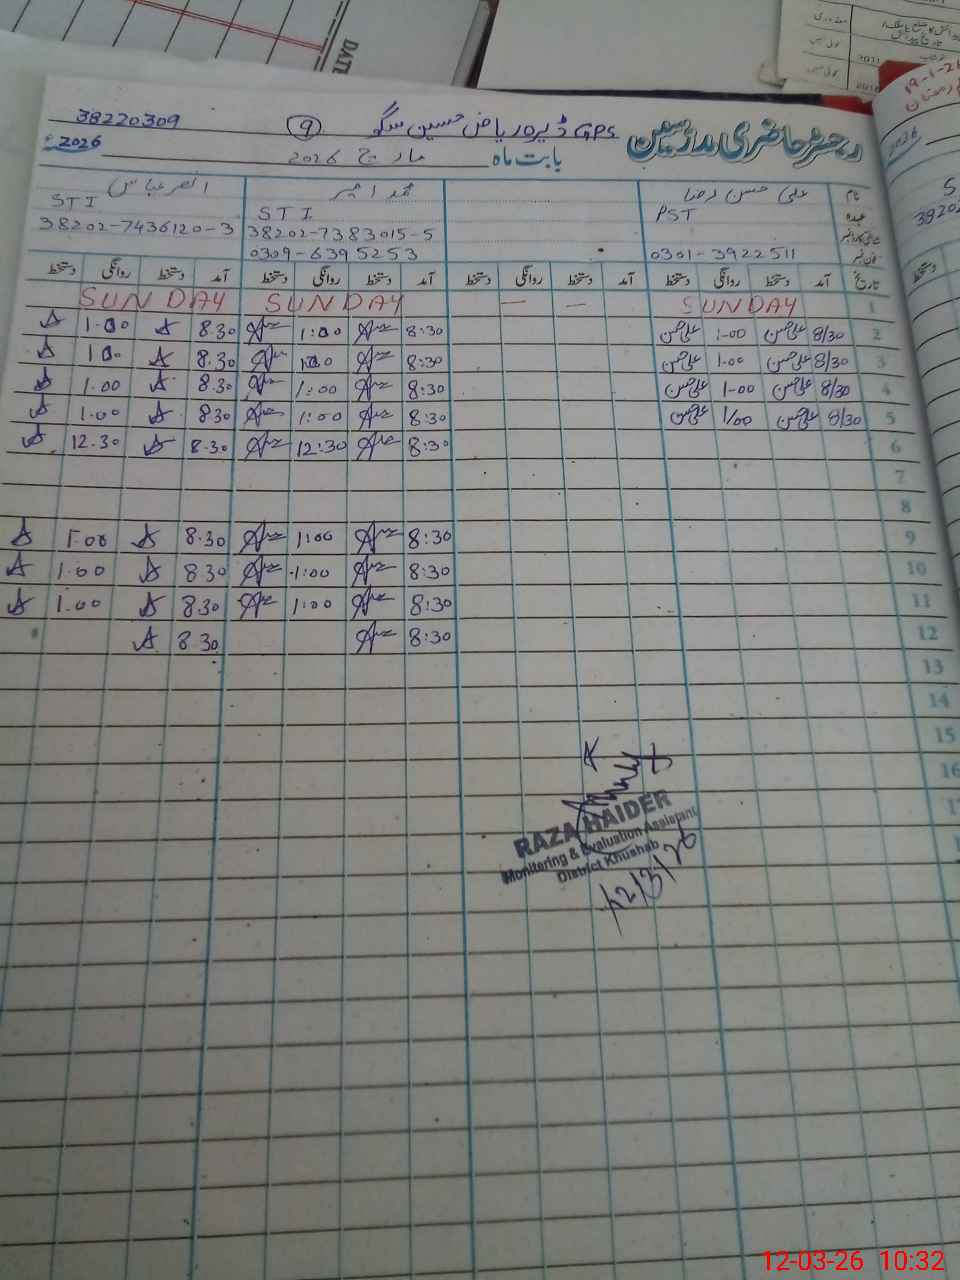 38220309
GPS ڈیرہ ریاض حسین سگو
9
رجسٹر حاضری مدرسین
2026ء
بابت ماہ مارچ 2026
نام علی حسن رضا محمد امیر انصر عباس
عہدہ PST STI STI
شناختی کارڈ نمبر 38202-7383015-5 38202-7436120-3
فون نمبر 0301-3922511 0309-6395253
تاریخ آمد دستخط روانگی دستخط آمد دستخط روانگی دستخط آمد دستخط روانگی دستخط آمد دستخط روانگی دستخط
1 SUNDAY — — SUNDAY SUNDAY
2 8/30 علی حسن 1:00 علی حسن 8:30 1:00 8.30 1.00
3 8/30 علی حسن 1.00 علی حسن 8:30 1:00 8.30 1.00
4 8/30 علی حسن 1-00 علی حسن 8:30 1:00 8.30 1.00
5 8/30 علی حسن 1/00 علی حسن 8:30 1:00 8.30 1.00
6 8:30 12:30 8.30 12.30
7
8
9 8:30 1:00 8.30 1.00
10 8:30 1:00 8.30 1.00
11 8:30 1:00 8.30 1.00
12 8:30 8.30
13
14
15
16
RAZA HAIDER
Monitoring & Evaluation Assistant
District Khushab
12/3/26
DATE
12-03-26 10:32